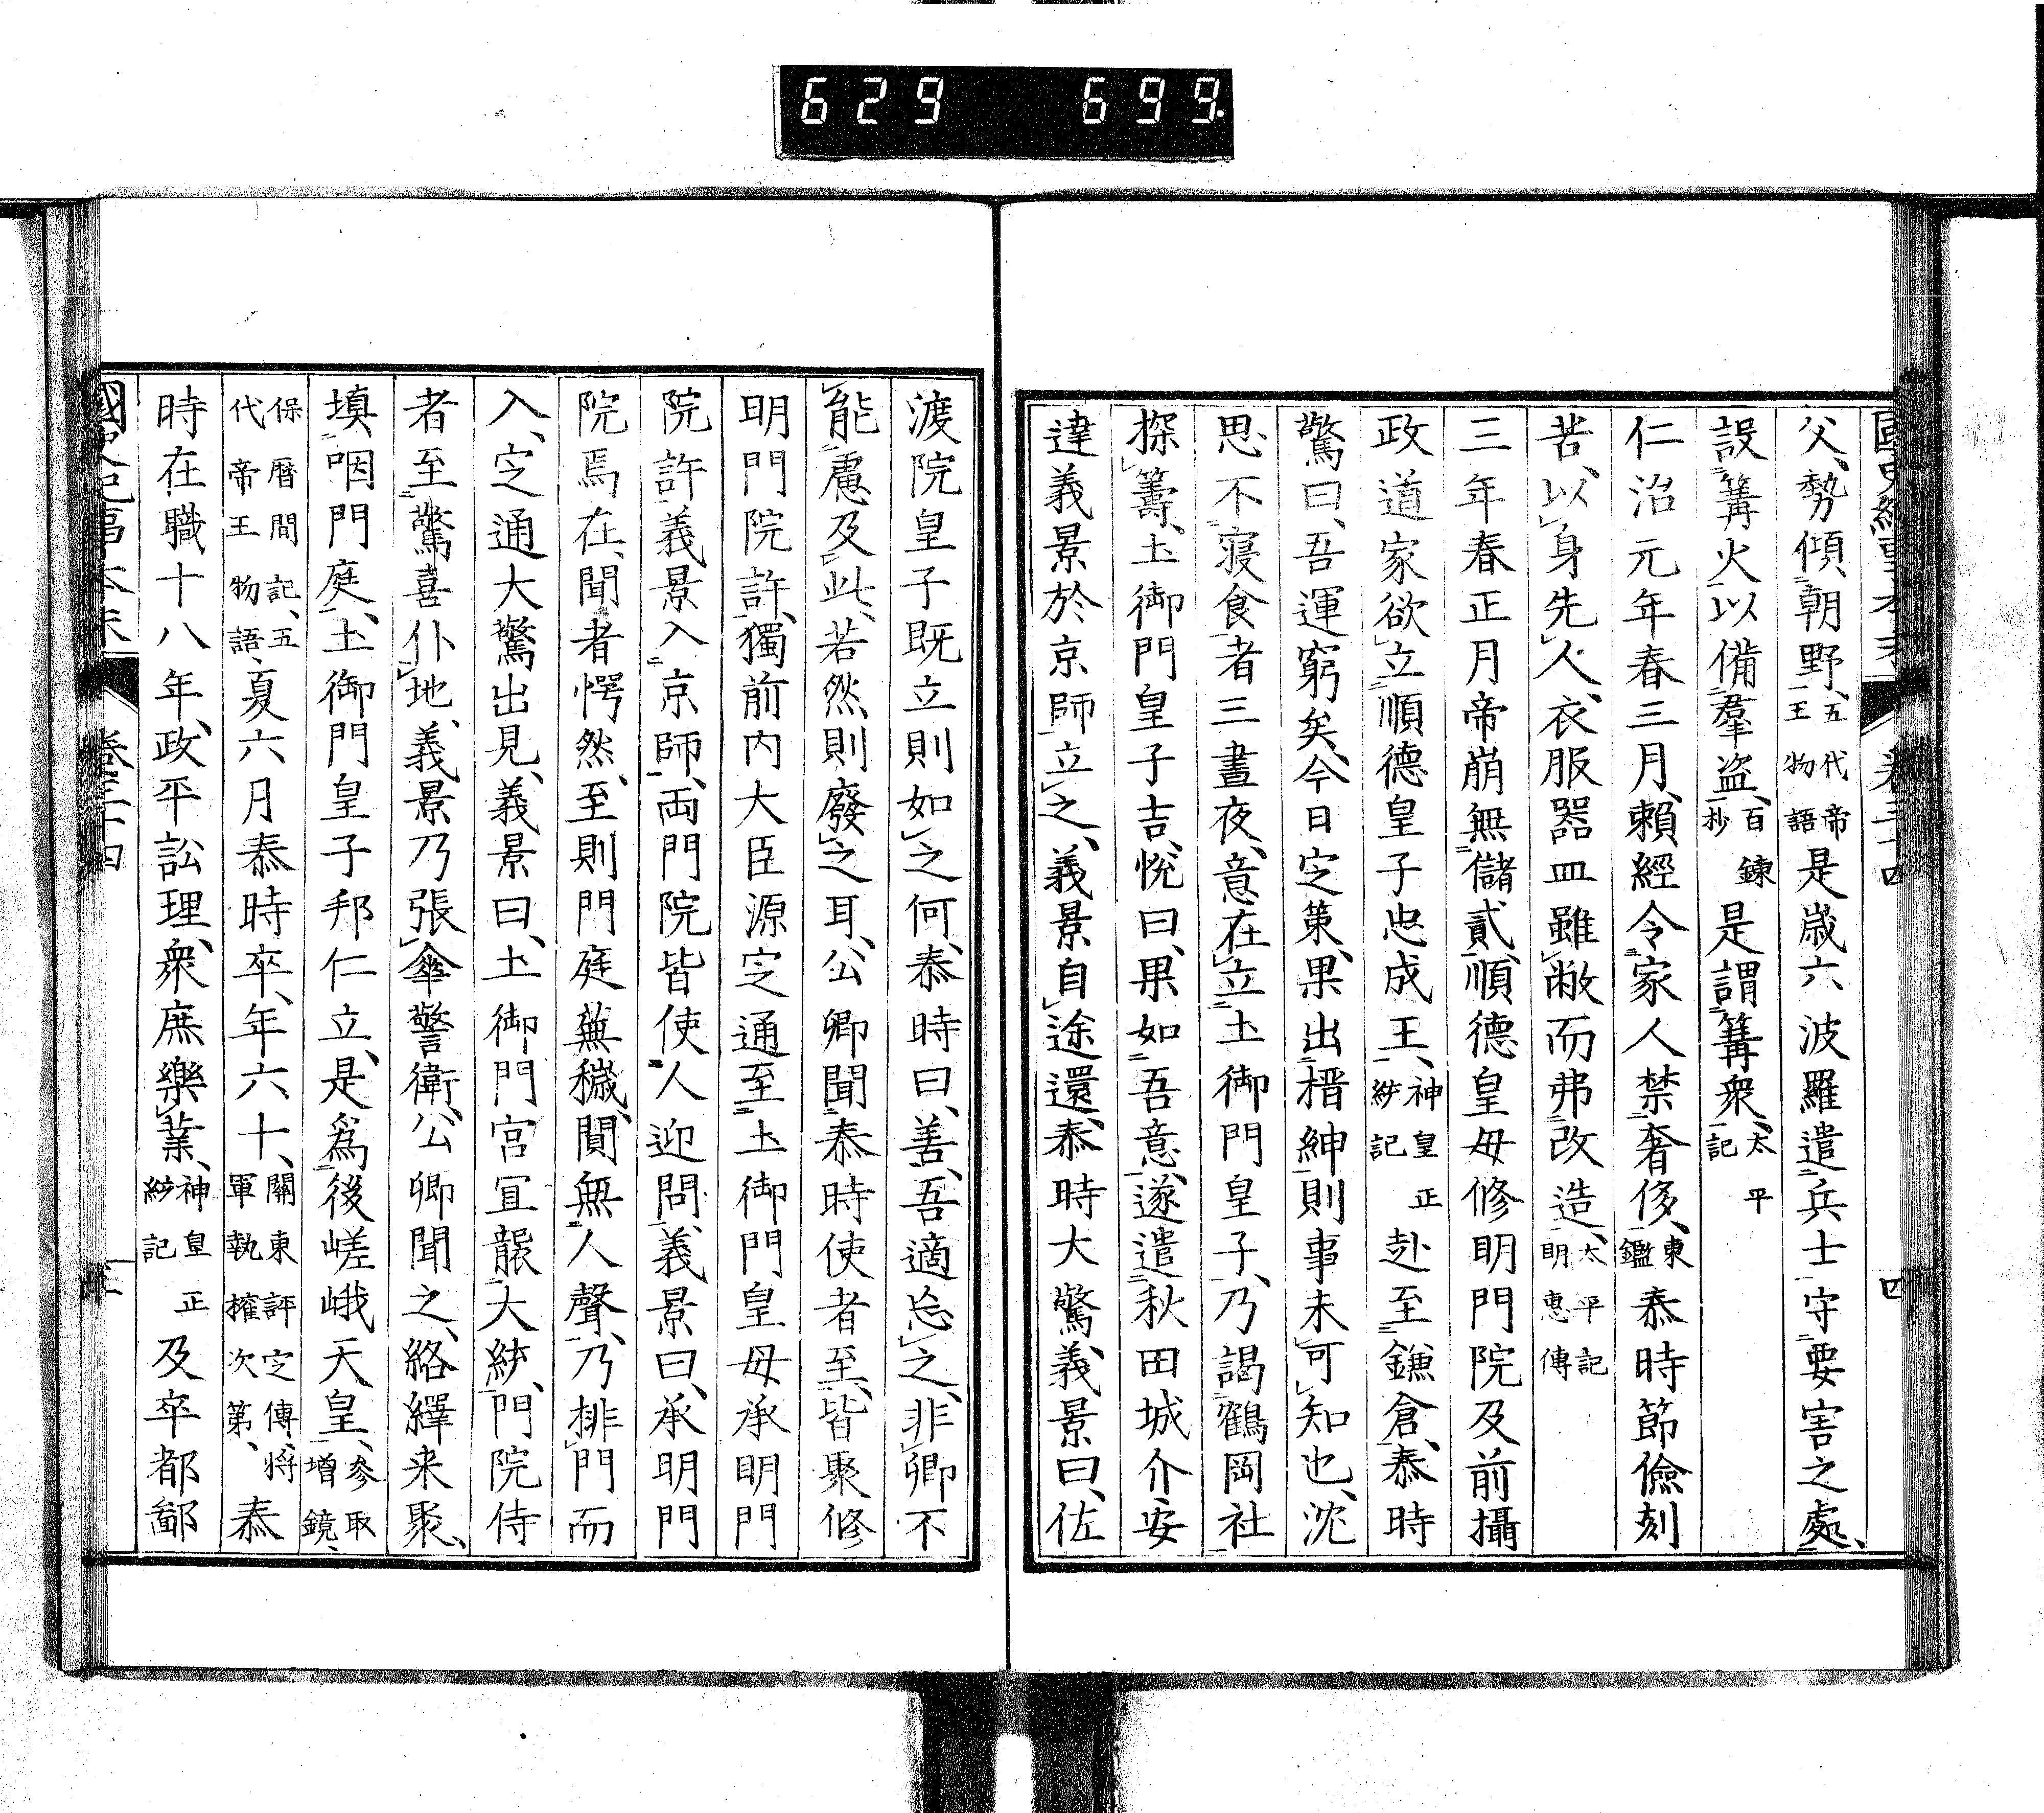 629 699.
父、勢傾朝野、五代帝王物語是歳六波羅遣兵士守要害之處、
設篝火以備羣盗、百錬抄是謂篝衆、太平記
仁治元年春三月、賴經令家人禁奢侈、東鑑泰時節儉刻
苦、以身先人、衣服器皿雖敝而弗改造、太平記明惠傳
三年春正月帝崩無儲貳、順德皇母修明門院及前攝
政道家欲立順德皇子忠成王、神皇正統記赴至鎌倉、泰時
驚曰、吾運窮矣、今日定策、果出搢紳則事未可知也、沈
思不寝食者三晝夜、意在立土御門皇子、乃謁鶴岡社
探籌、土御門皇子吉、悅曰、果如吾意、遂遣秋田城介安
達義景於京師立之、義景自途還、泰時大驚、義景曰、佐
渡院皇子既立則如之何、泰時曰、善、吾適忘之、非卿不
能慮及此、若然則廢之耳、公卿聞泰時使者至、皆聚修
明門院許、獨前内大臣源定通至土御門皇母承明門
院許、義景入京師、両門院皆使人迎問、義景曰、承明門
院焉在、聞者愕然、至則門庭蕪穢、闃無人聲、乃排門而
入、定通大驚出見、義景曰、土御門宮宜襲大統、門院侍
者至驚喜仆地、義景乃張傘警衛、公卿聞之、絡繹来聚、
填咽門庭、土御門皇子邦仁立、是爲後嵯峨天皇、参取増鏡、
保暦間記、五代帝王物語、夏六月泰時卒、年六十、關東評定傳、將軍執權次第、泰
時在職十八年、政平訟理、衆庶樂業、神皇正統記及卒都鄙